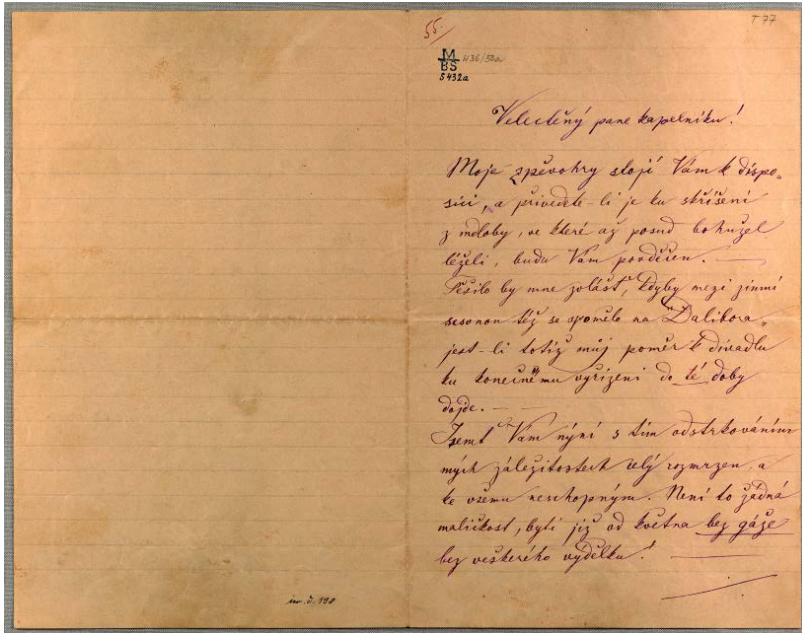 55.
T 77
M
BS
S 432a
Velectěný pane kapelníku!
Moje zpěvohry stojí Vám k dispo-
sici, a přivedete-li je ku skříšení
z mdloby, ve které až posud bohužel
leželi, budu Vám povděčen. —
Těšilo by mne zvlášť, kdyby mezi zimní
sesonou též se zpomělo na "Dalibora"
jest-li totiž můj poměr k divadlu
ku konečnému vyřízení do té doby
dojde. — —
Jsemť Vám nyní s tím odstrkováním
mých záležitostech celý rozmrzen a
ke všemu neschopným. Není to žádná
maličkost, býti již od května bez gáže
bez veškerého výdělku! —
inv. č. 190